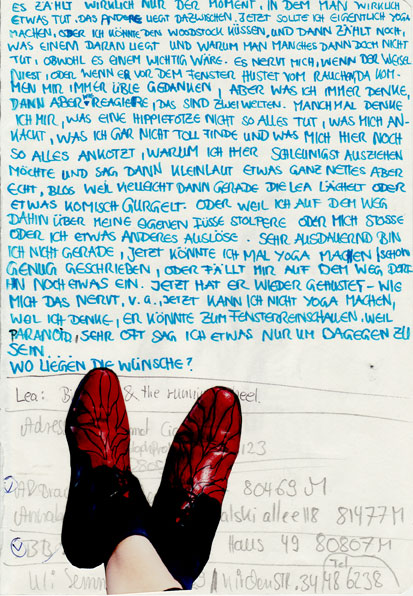 ES ZÄHLT WIRKLICH NUR DER MOMENT, IN DEM MAN WIRKLICH
ETWAS TUT. DAS ANDERE LIEGT DAZWISCHEN. JETZT SOLLTE ICH EIGENTLICH YOGA
MACHEN, ODER ICH KÖNNTE DEN WOODSTOCK KÜSSEN, UND DANN ZÄHLT NOCH,
WAS EINEM DARAN LIEGT UND WARUM MAN MANCHES DANN DOCH NICHT
TUT, OBWOHL ES EINEM WICHTIG WÄRE. ES NERVT MICH, WENN DER WEISEL
NIEST, ODER WENN ER VOR DEM FENSTER HUSTET VOM RAUCHEN, DA KOM-
MEN MIR IMMER ÜBLE GEDANKEN, ABER WAS ICH IMMER DENKE,
DANN ABER REAGIERE, DAS SIND ZWEI WELTEN. MANCHMAL DENKE
ICH MIR, WAS EINE HIPPIEFOTZE NICHT SO ALLES TUT, WAS MICH AN-
KACKT, WAS ICH GAR NICHT TOLL FINDE UND WAS MICH HIER NOCH
SO ALLES ANKOTZT, WARUM ICH HIER SCHLEUNIGST AUSZIEHEN
MÖCHTE UND SAG DANN KLEINLAUT ETWAS GANZ NETTES ABER
ECHT, BLOS WEIL VIELLEICHT DANN GERADE DIE LEA LÄCHELT ODER
ETWAS KOMISCH GURGELT. ODER WEIL ICH AUF DEM WEG
DAHIN ÜBER MEINE EIGENEN FÜSSE STOLPERE ODER MICH STOSSE
ODER ICH ETWAS ANDERES AUSLÖSE. SEHR AUSDAUERND BIN
ICH NICHT GERADE, JETZT KÖNNTE ICH MAL YOGA MACHEN, SCHON
GENUG GESCHRIEBEN, ODER FÄLLT MIR AUF DEM WEG DORT
HIN NOCH ETWAS EIN. JETZT HAT ER WIEDER GEHUSTET - WIE
MICH DAS NERVT, V.a., JETZT KANN ICH NICHT YOGA MACHEN,
WEIL ICH DENKE, ER KÖNNTE ZUM FENSTER REINSCHAUEN, WEIL
PARANOID, SEHR OFT SAG ICH ETWAS NUR UM DAGEGEN ZU
SEIN...
WO LIEGEN DIE WÜNSCHE?
Lea: & the running
123
80469 M
allee 118 81477 M
Haus 49 80807 M
Tel
34 48 6238